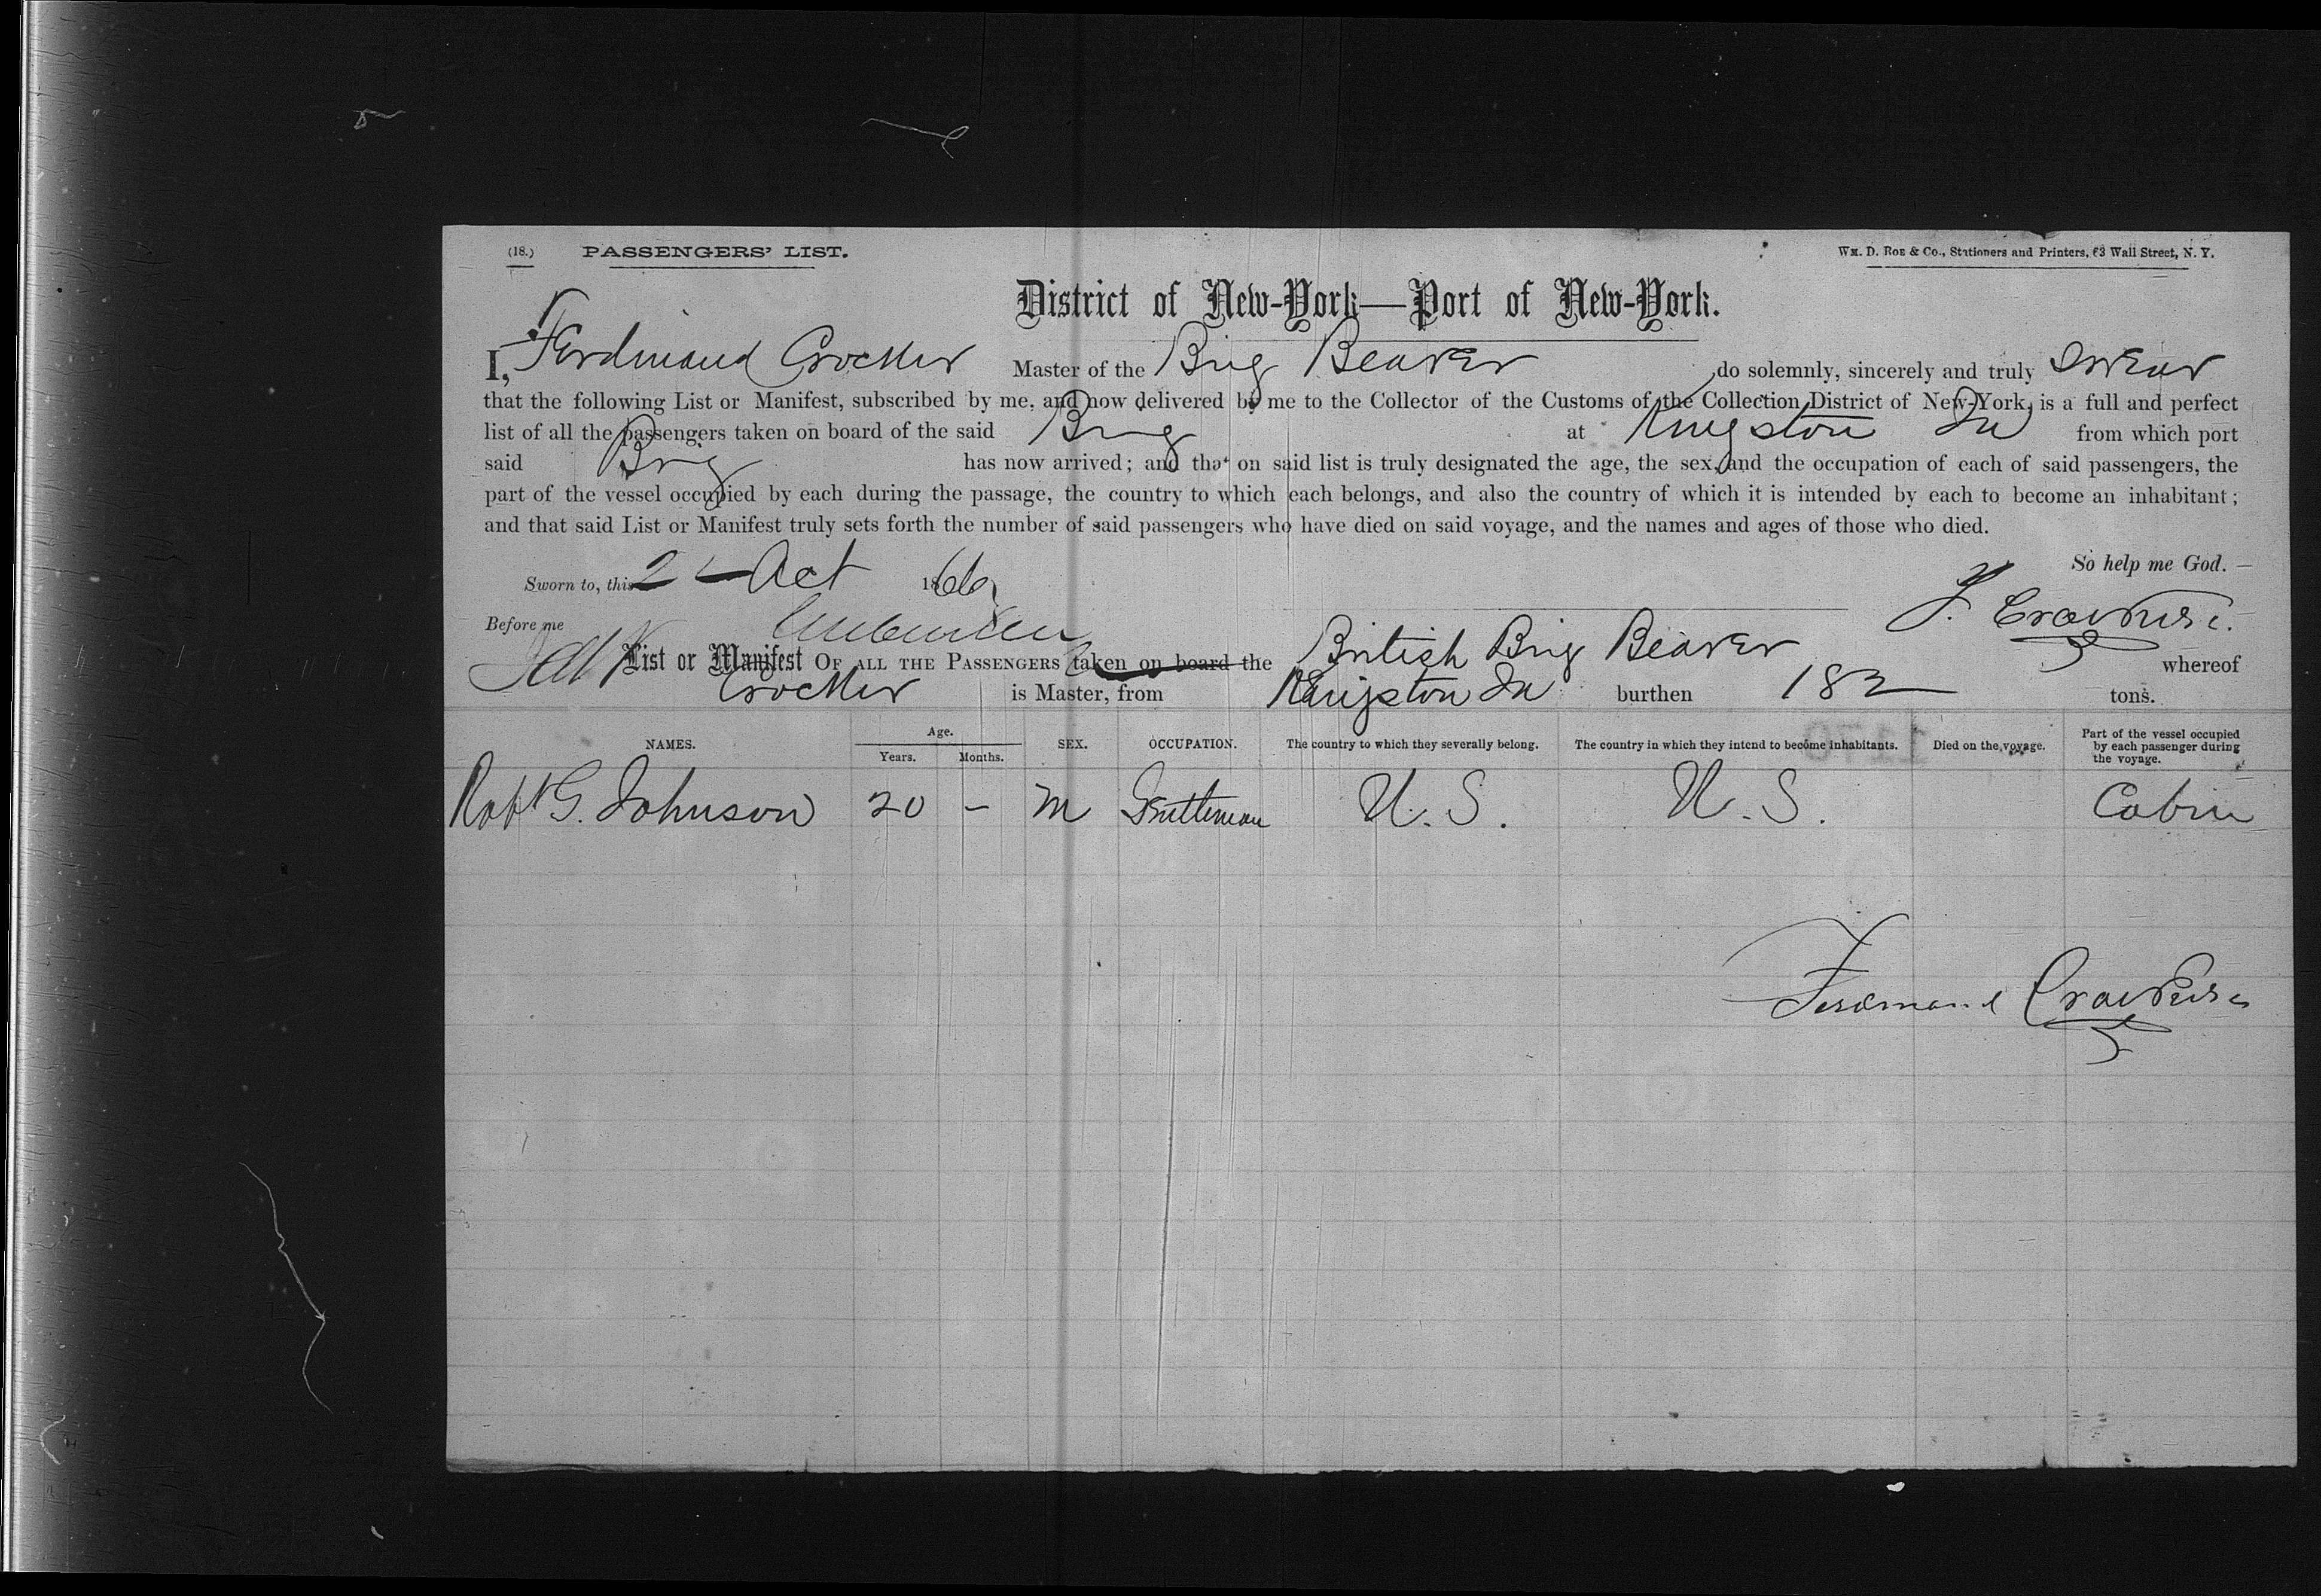 (18.) PASSENGERS' LIST. WM. D. ROE & CO., Stationers and Printers, 63 Wall Street, N. Y.
District of New-York—Port of New-York.
I, Ferdinand Crocker Master of the Brig Beaver do solemnly, sincerely and truly swear
that the following List or Manifest, subscribed by me, and now delivered by me to the Collector of the Customs of the Collection District of New-York, is a full and perfect
list of all the passengers taken on board of the said Brig at Kingston Ja from which port
said Brig has now arrived; and that on said list is truly designated the age, the sex, and the occupation of each of said passengers, the
part of the vessel occupied by each during the passage, the country to which each belongs, and also the country of which it is intended by each to become an inhabitant;
and that said List or Manifest truly sets forth the number of said passengers who have died on said voyage, and the names and ages of those who died.
So help me God.
Sworn to, this 2 Oct 1866
Before me
List or Manifest OF ALL THE PASSENGERS taken on board the British Brig Beaver whereof
Crocker is Master, from Kingston Ja burthen 182 tons.
NAMES. Age. Years. Months. SEX. OCCUPATION. The country to which they severally belong. The country in which they intend to become inhabitants. Died on the voyage. Part of the vessel occupied by each passenger during the voyage.
Robt G. Johnson 20 - M Gentleman U.S. U.S. Cabin
Ferdinand